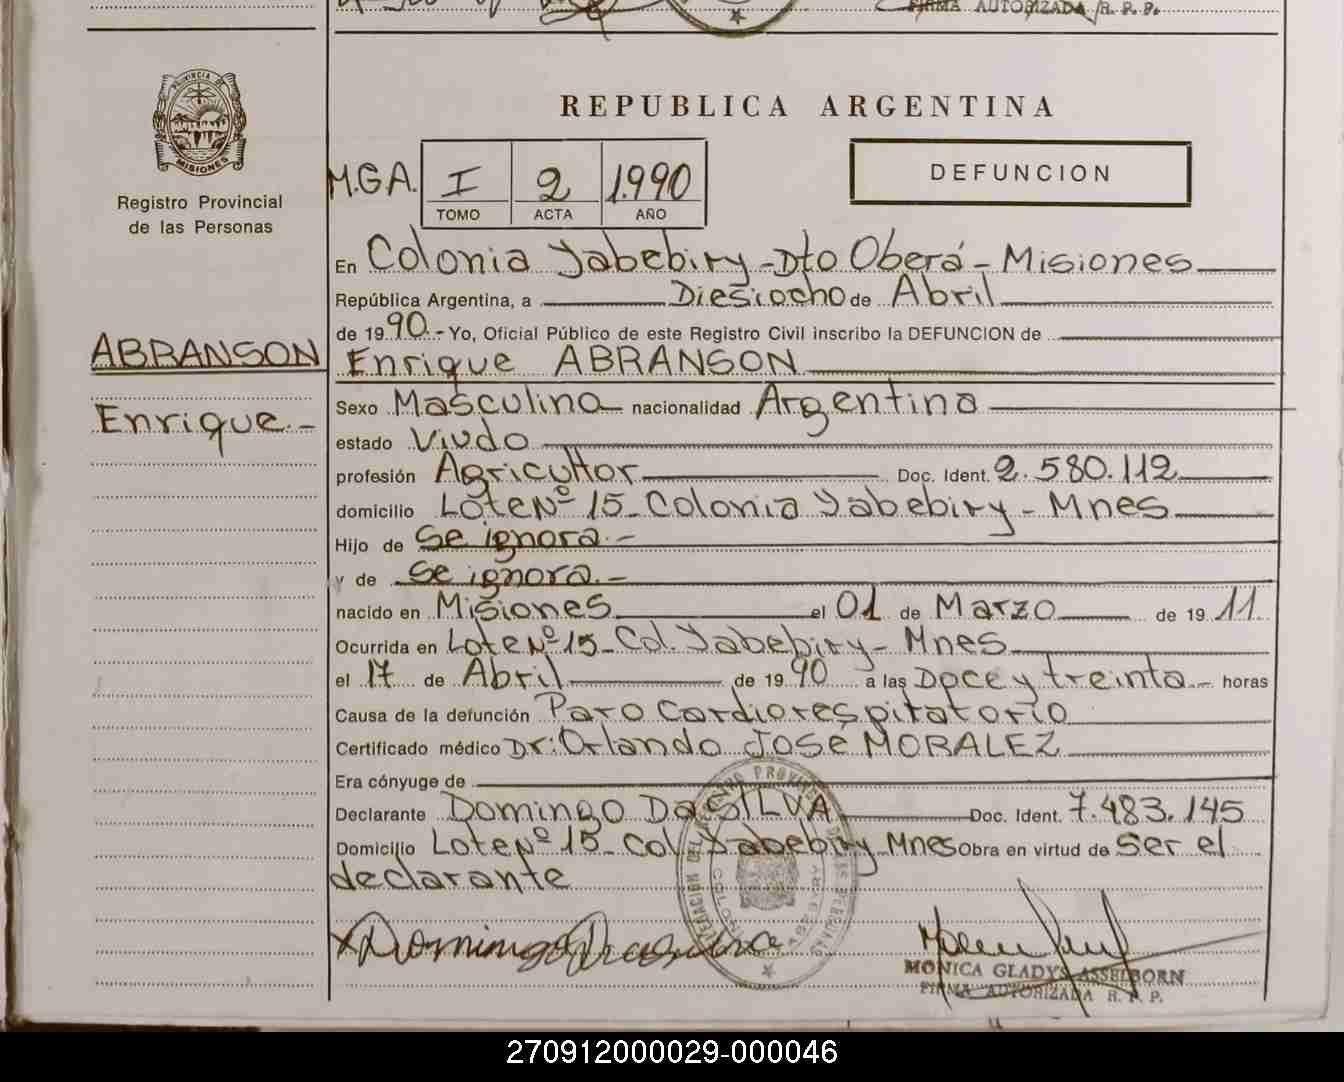 FIRMA AUTORIZADA R. P. P.
PROVINCIA DE
MISIONES
Registro Provincial
de las Personas
REPUBLICA ARGENTINA
M.G.A. I 2 1.990
TOMO ACTA AÑO
DEFUNCION
En Colonia Yabebiry - Dto Oberá - Misiones
República Argentina, a Diesiocho de Abril
de 1990.- Yo, Oficial Público de este Registro Civil inscribo la DEFUNCION de
ABRANSON
Enrique ABRANSON
Enrique.-
Sexo Masculino nacionalidad Argentina
estado Viudo
profesión Agricultor Doc. Ident. 2.580.112
domicilio Lote Nº 15 - Colonia Yabebiry - Mnes
Hijo de Se ignora.-
y de Se ignora.-
nacido en Misiones el 01 de Marzo de 1911.
Ocurrida en Lote Nº 15 - Col. Yabebiry - Mnes
el 17 de Abril de 1990 a las Doce y treinta - horas
Causa de la defunción Paro Cardiorespitatorio
Certificado médico Dr: Orlando José MORALEZ
Era cónyuge de
Declarante Domingo Da SILVA Doc. Ident. 7.483.145
Domicilio Lote Nº 15 - Col Yabebiry Mnes Obra en virtud de Ser el
declarante
MONICA GLADYS ASSELBORN
FIRMA AUTORIZADA R. P. P.
270912000029-000046